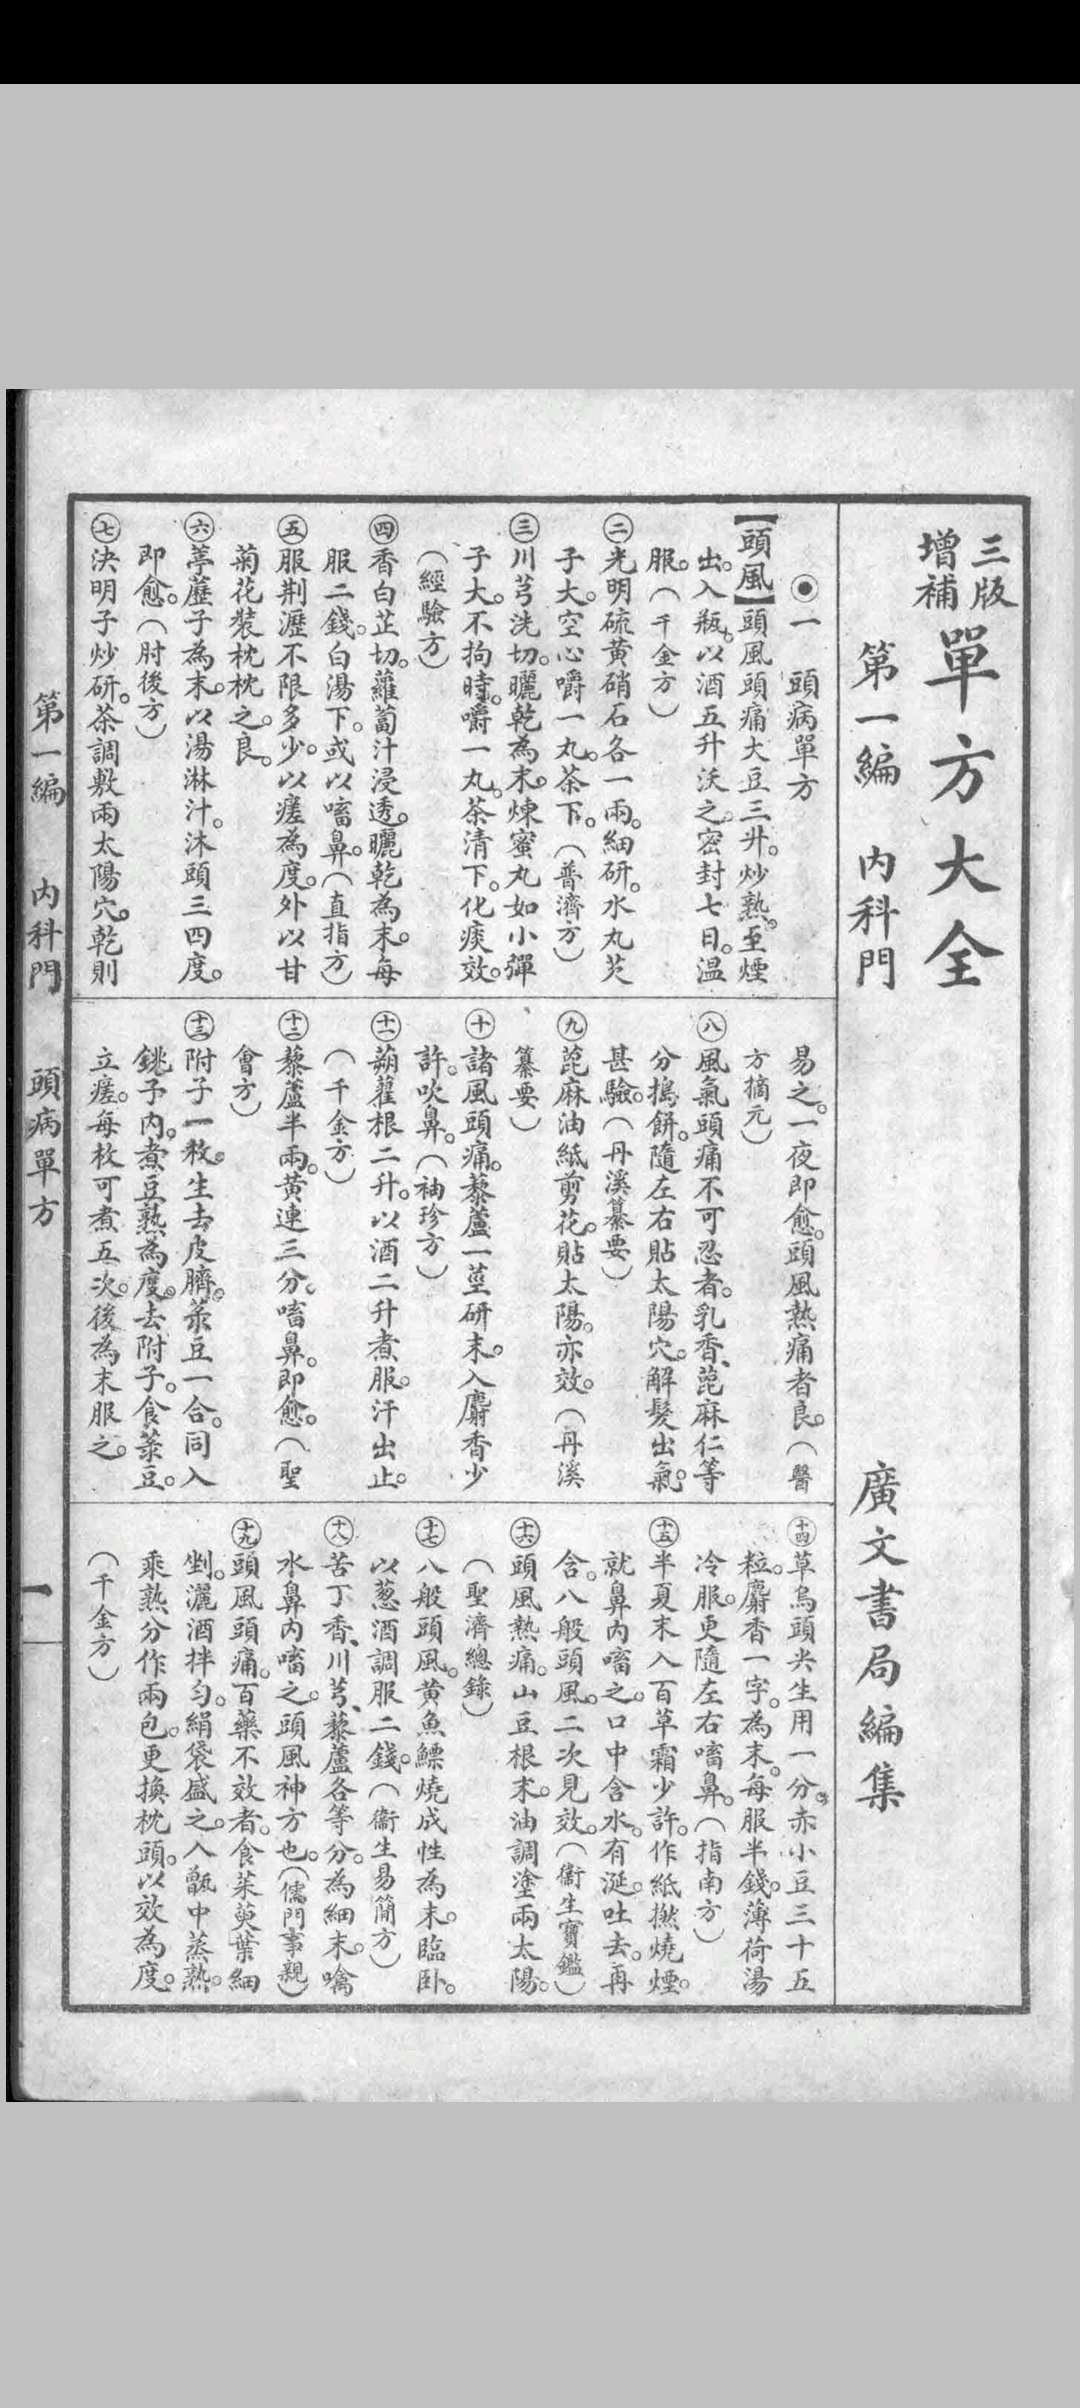 三版
增補
單方大全
第一編　內科門
廣文書局編集
◉一　頭病單方
【頭風】頭風頭痛大豆三升。炒熟。至煙
出。入瓶。以酒五升沃之。密封七日。溫
服。（千金方）
㊁光明硫黃硝石各一兩。細研。水丸芡
子大。空心嚼一丸。茶下。（普濟方）
㊂川芎洗切。曬乾為末。煉蜜丸如小彈
子大。不拘時。嚼一丸。茶清下。化痰效。
（經驗方）
㊃香白芷切。蘿蔔汁浸透。曬乾為末。每
服二錢。白湯下。或以㗜鼻。（直指方）
㊄服荆瀝不限多少。以瘥為度。外以甘
菊花裝枕枕之。良。
㊅葶藶子為末。以湯淋汁。沐頭三四度。
即愈。（肘後方）
㊆決明子炒研。茶調敷兩太陽穴。乾則
易之。一夜即愈。頭風熱痛者良。（醫
方摘元）
㊇風氣頭痛不可忍者。乳香、蓖麻仁等
分搗餅。隨左右貼太陽穴。解髮出氣。
甚驗。（丹溪纂要）
㊈蓖麻油紙剪花。貼太陽。亦效。（丹溪
纂要）
㊉諸風頭痛。藜蘆一莖研末。入麝香少
許。吹鼻。（袖珍方）
⑪蒴藋根二升。以酒二升煮服。汗出止。
（千金方）
⑫藜蘆半兩。黃連三分。㗜鼻。即愈。（聖
會方）
⑬附子一枚。生去皮臍。菉豆一合。同入
銚子內。煮豆熟為度。去附子。食菉豆。
立瘥。每枚可煮五次。後為末服之。
⑭草烏頭尖生用一分。赤小豆三十五
粒。麝香一字。為末。每服半錢。薄荷湯
冷服。更隨左右㗜鼻。（指南方）
⑮半夏末入百草霜少許。作紙撚燒煙。
就鼻內㗜之。口中含水。有涎。吐去。再
含。八般頭風。二次見效。（衞生寶鑑）
⑯頭風熱痛。山豆根末。油調塗兩太陽。
（聖濟總錄）
⑰八般頭風。黃魚鰾燒成性為末。臨卧。
以葱酒調服二錢。（衞生易簡方）
⑱苦丁香、川芎、藜蘆各等分。為細末。噙
水鼻內㗜之。頭風神方也。（儒門事親）
⑲頭風頭痛。百藥不效者。食茱萸葉細
剉。灑酒拌勻。絹袋盛之。入甑中蒸熟。
乘熟分作兩包。更換枕頭。以效為度。
（千金方）
第一編　內科門　頭病單方
一